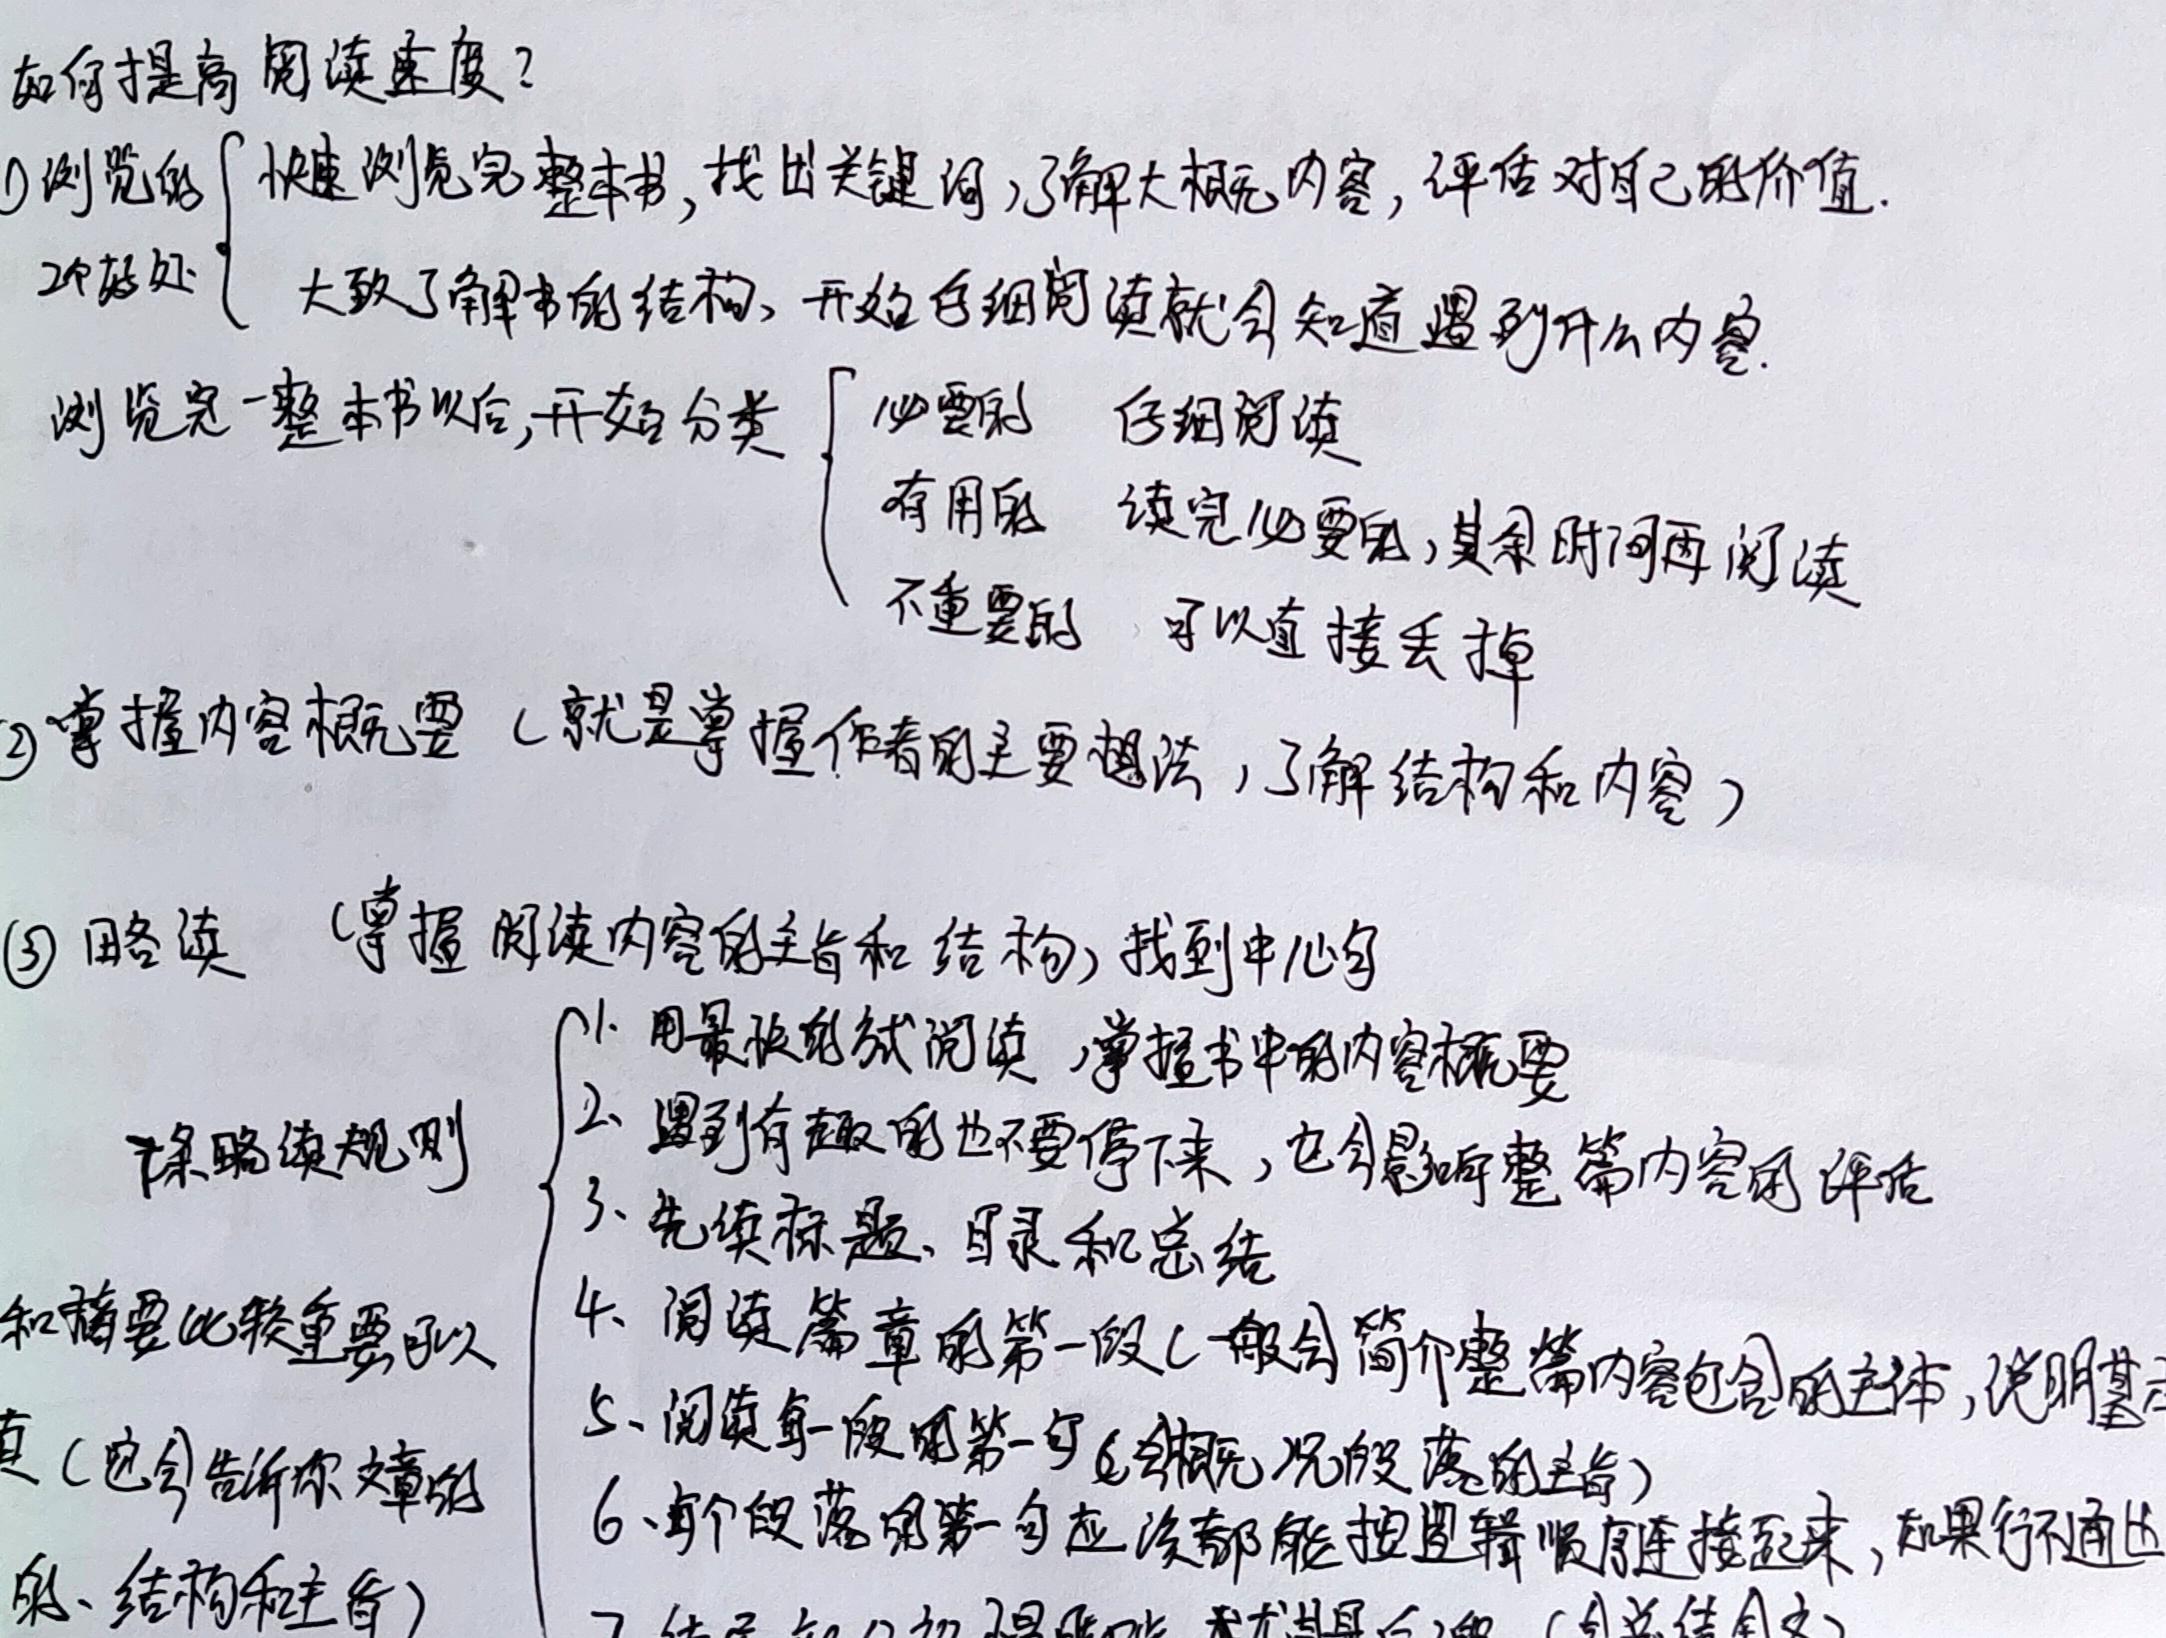 如何提高阅读速度?
①浏览的 快速浏览完整本书,找出关键词,了解大概内容,评估对自己的价值.
2个好处 大致了解书的结构、开始仔细阅读就会知道遇到什么内容.
浏览完一整本书以后,开始分类 必要的 仔细阅读
有用的 读完必要的,其余时间再阅读
不重要的 可以直接丢掉
②掌握内容概要(就是掌握作者的主要想法,了解结构和内容)
③略读 (掌握阅读内容的主旨和结构,找到中心句
1. 用最快的 阅读,掌握书中的内容概要
2、遇到有趣的也不要停下来,它会影响整篇内容的评估
七条略读规则
3、先读标题、目录和总结
4、阅读篇章的第一段(一般会简介整篇内容包含的主体,说明基
和摘要比较重要可以
5、阅读每一段的第一句(会概况段落的主旨)
(它会告诉你文章的
6、每个段落的第一句应该都能按逻辑顺序连接起来,如果行不通
的、结构和主旨)
7